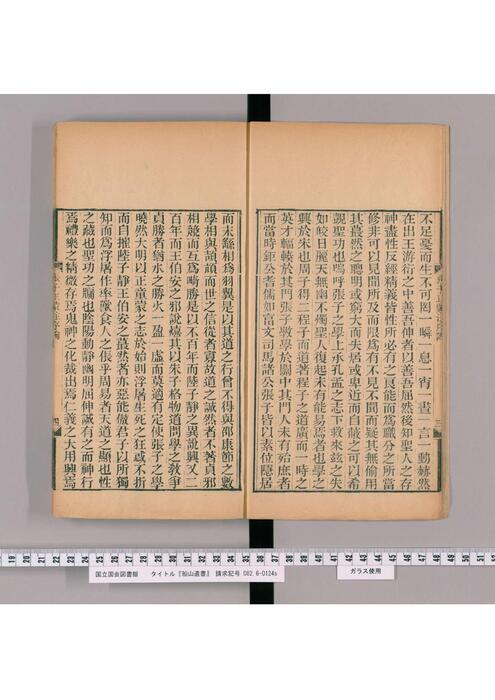 不足憂而生不可罔一瞬一息一宵一晝一言一動赫然
在出王游衍之中善吾伸者以善吾屈然後知聖人之存
神盡性反經精義皆性所必有之良能而爲職分之所當
修非可以見聞所及而限爲有不見不聞而疑其無偷用
其蕞然之聰明或窮大而失居或卑近而自蔽之可以希
覬聖功也嗚呼張子之學上承孔孟之志下救來茲之失
如皎日麗天無幽不燭聖人復起未有能易焉者也學之
興於宋也周子得二程子而道著程子之道廣而一時之
英才輻輳於其門張子斆學於關中其門人未有殆庶者
而當時鉅公耆儒如富文司馬諸公張子皆以素位隱居
而末繇相爲羽翼是以其道之行曾不得與邵康節之數
學相與頡頏而世之信從者寡故道之誠然者不著貞邪
相競而互爲畸勝是以不百年而陸子靜之異說興又二
百年而王伯安之邪說熺其以朱子格物道問學之敎爭
貞勝者猶水之勝火一盈一虛而莫適有定使張子之學
曉然大明以正童蒙之志於始則浮屠生死之狂惑不折
而自摧陸子靜王伯安之蕞然者亦惡能傲君子以所獨
知而爲浮屠作率獸食人之倀乎周易者天道之顯也性
之藏也聖功之牖也陰陽動靜幽明屈伸誠有之而神行
焉禮樂之精微存焉鬼神之化裁出焉仁義之大用興焉
19 20 21 22 23 24 25 26 27 28 29 30 31 32 33 34 35 36 37 38 39 40 41 42 43 44 45 46 47 48 49 50 51 52
国立国会図書館 タイトル『船山遺書』 請求記号 082.6-O124s
ガラス使用